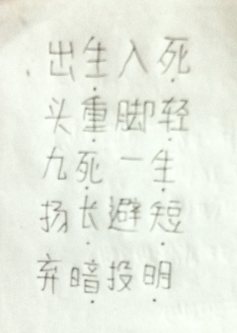 出生入死
头重脚轻
九死一生
扬长避短
弃暗投明